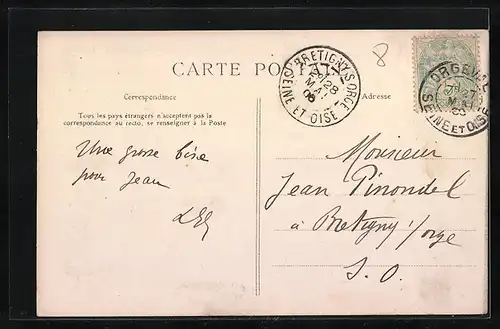 8
CARTE POSTALE
BRETIGNY S/ ORGE
28
MAI
05
SEINE ET OISE
ORGEVAL
27
MAI
05
SEINE ET OISE
Correspondance
Adresse
Tous les pays étrangers n'acceptent pas la
correspondance au recto, se renseigner à la Poste
Une grosse bise
pour Jean
Monsieur
Jean Pinondel
à Bretigny s/orge
S. O.